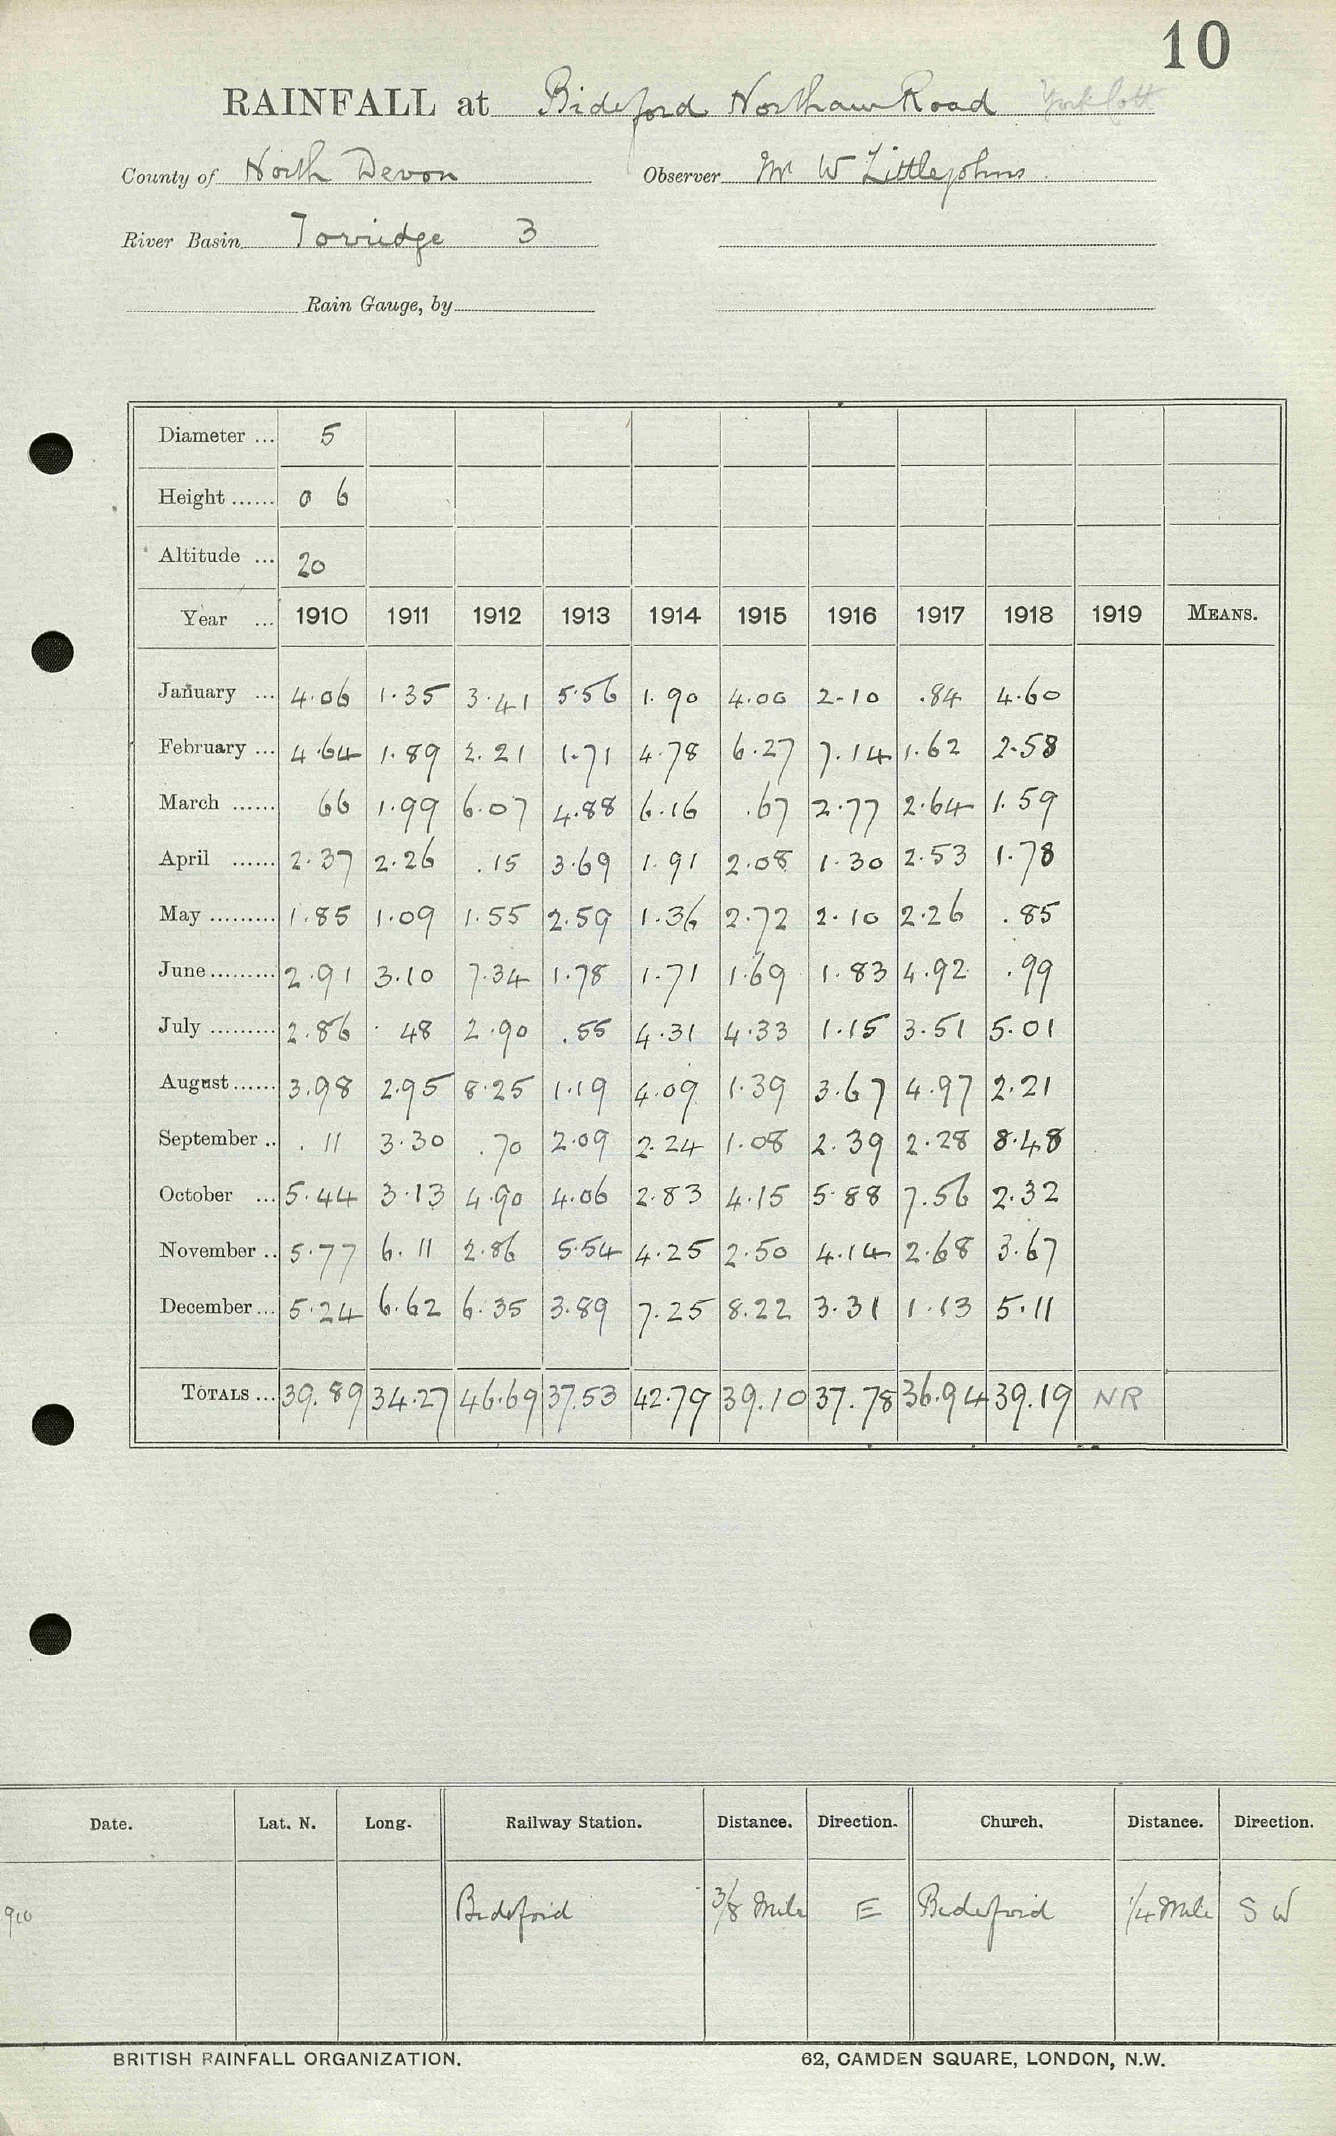 10
RAINFALL at Bideford Northam Road York Cott
County of North Devon Observer Mr W Littlejohns
River Basin Torridge 3
Rain Gauge, by
Diameter ... 5
Height ...... 0 6
Altitude ... 20
Year ... 1910 1911 1912 1913 1914 1915 1916 1917 1918 1919 MEANS.
January ... 4.06 1.35 3.41 5.56 1.90 4.00 2.10 .84 4.60
February ... 4.64 1.89 2.21 1.71 4.78 6.27 7.14 1.62 2.58
March ...... 66 1.99 6.07 4.88 6.16 .67 2.77 2.64 1.59
April ...... 2.37 2.26 .15 3.69 1.91 2.08 1.30 2.53 1.78
May ......... 1.85 1.09 1.55 2.59 1.36 2.72 2.10 2.26 .85
June ......... 2.91 3.10 7.34 1.78 1.71 1.69 1.83 4.92 .99
July ......... 2.86 .48 2.90 .55 4.31 4.33 1.15 3.51 5.01
August ...... 3.98 2.95 8.25 1.19 4.09 1.39 3.67 4.97 2.21
September .. .11 3.30 .70 2.09 2.24 1.08 2.39 2.28 8.48
October ... 5.44 3.13 4.90 4.06 2.83 4.15 5.88 7.56 2.32
November .. 5.77 6.11 2.86 5.54 4.25 2.50 4.14 2.68 3.67
December ... 5.24 6.62 6.35 3.89 7.25 8.22 3.31 1.13 5.11
TOTALS ... 39.89 34.27 46.69 37.53 42.79 39.10 37.78 36.94 39.19 NR
Date. Lat. N. Long. Railway Station. Distance. Direction. Church. Distance. Direction.
910 Bideford 3/8 Mile E Bideford 1/4 Mile S W
BRITISH RAINFALL ORGANIZATION. 62, CAMDEN SQUARE, LONDON, N.W.